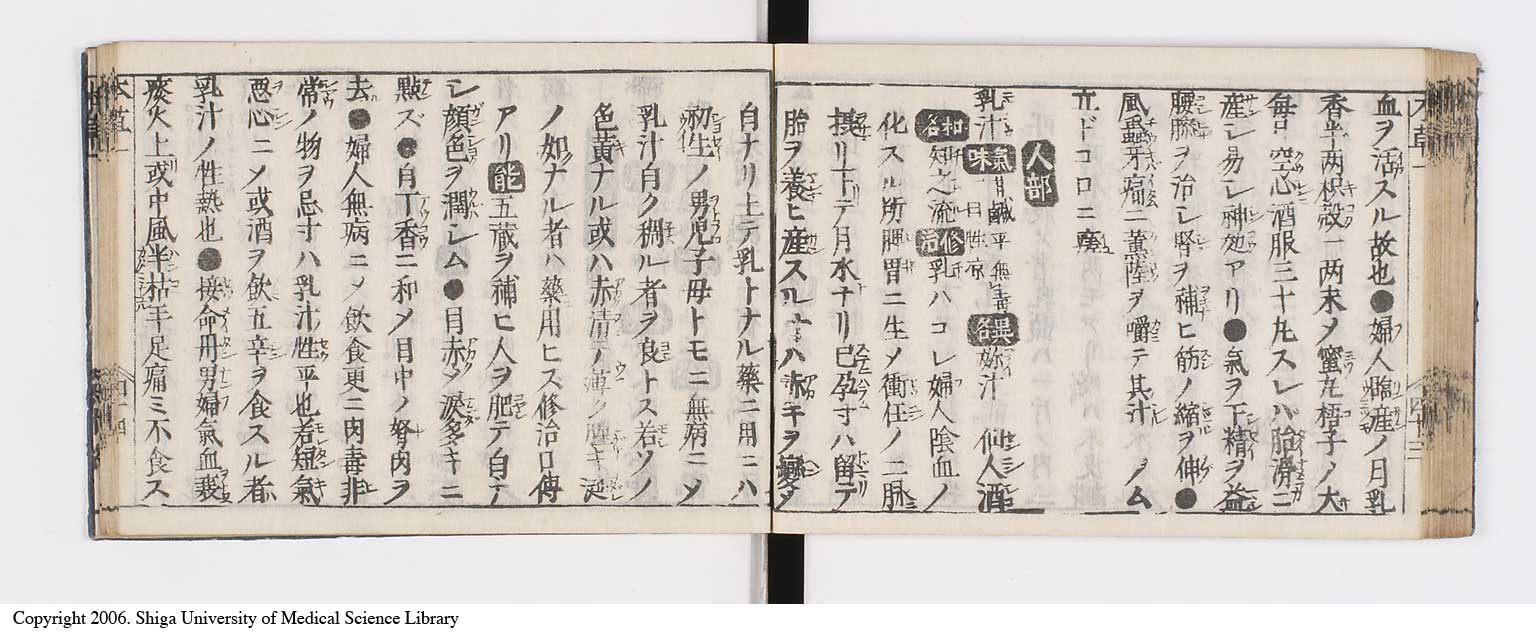 血ヲ活スル故也●婦人臨産ノ月乳
香半两枳殻一两末メ蜜丸梧子ノ大
毎日空心酒服三十丸スレハ胎滑ニ
産レ易シ神効アリ●氣ヲ下精ヲ益
腰膝ヲ治シ腎ヲ補ヒ筋ノ縮ヲ伸●
風蟲牙痛ニ薫陸ヲ嚼テ其汁ヲノム
立ドコロニ瘥
人部
乳汁 氣味 甘鹹平無毒 一曰性凉 異名 妳汁 仙人酒
和名 知之流 修治 乳ハコレ婦人陰血ノ
化スル所脾胃ニ生メ衝任ノ二脉
リ下テ月水ナリ已孕寸ハ留テ
胎ヲ養ヒ産スル寸ハ赤キヲ變メ
白ナリ上テ乳トナル藥ニ用ニハ
初生ノ男児子母トモニ無病ニソ
乳汁白ク稠ル者ヲ良トス若ソノ
色黄ナル或ハ赤清ノ薄ク腥キ涎
ノ如ナル者ハ藥用ヒス修治口傳
アリ 能 五蔵ヲ補ヒ人ヲ肥テ白テ
シ顔色ヲ潤シム●目赤メ涙多キニ
點ズ●白丁香ニ和メ目中ノ努肉ヲ
去●婦人無病ニメ飲食更ニ肉毒非
常ノ物ヲ忌寸ハ乳汁性平也若短氣
悪心ニメ或酒ヲ飲五辛ヲ食スル者
乳汁ノ性熱也●接命丹男婦氣血衰
痰火上或中風半枯手足痛ミ不食ス
Copyright 2006. Shiga University of Medical Science Library